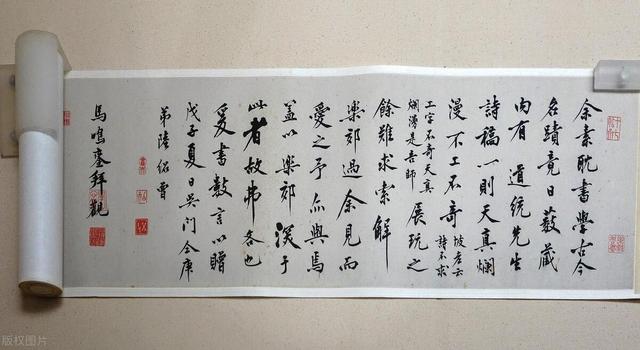 余素耽書學古今
名蹟竟日藏
内有 道統先生
詩稿一則天真爛
漫不工不奇 坡老云
詩不求
工字不奇天真
爛漫是吾師 展玩之
餘難求索解
樂郊過余見而
愛之予亦與焉
蓋以樂郊深于
此者故弗吝也
爰書數言以贈
戊子夏日吳門
弟陸紹曾
馬鳴鑾拜觀
版权图片